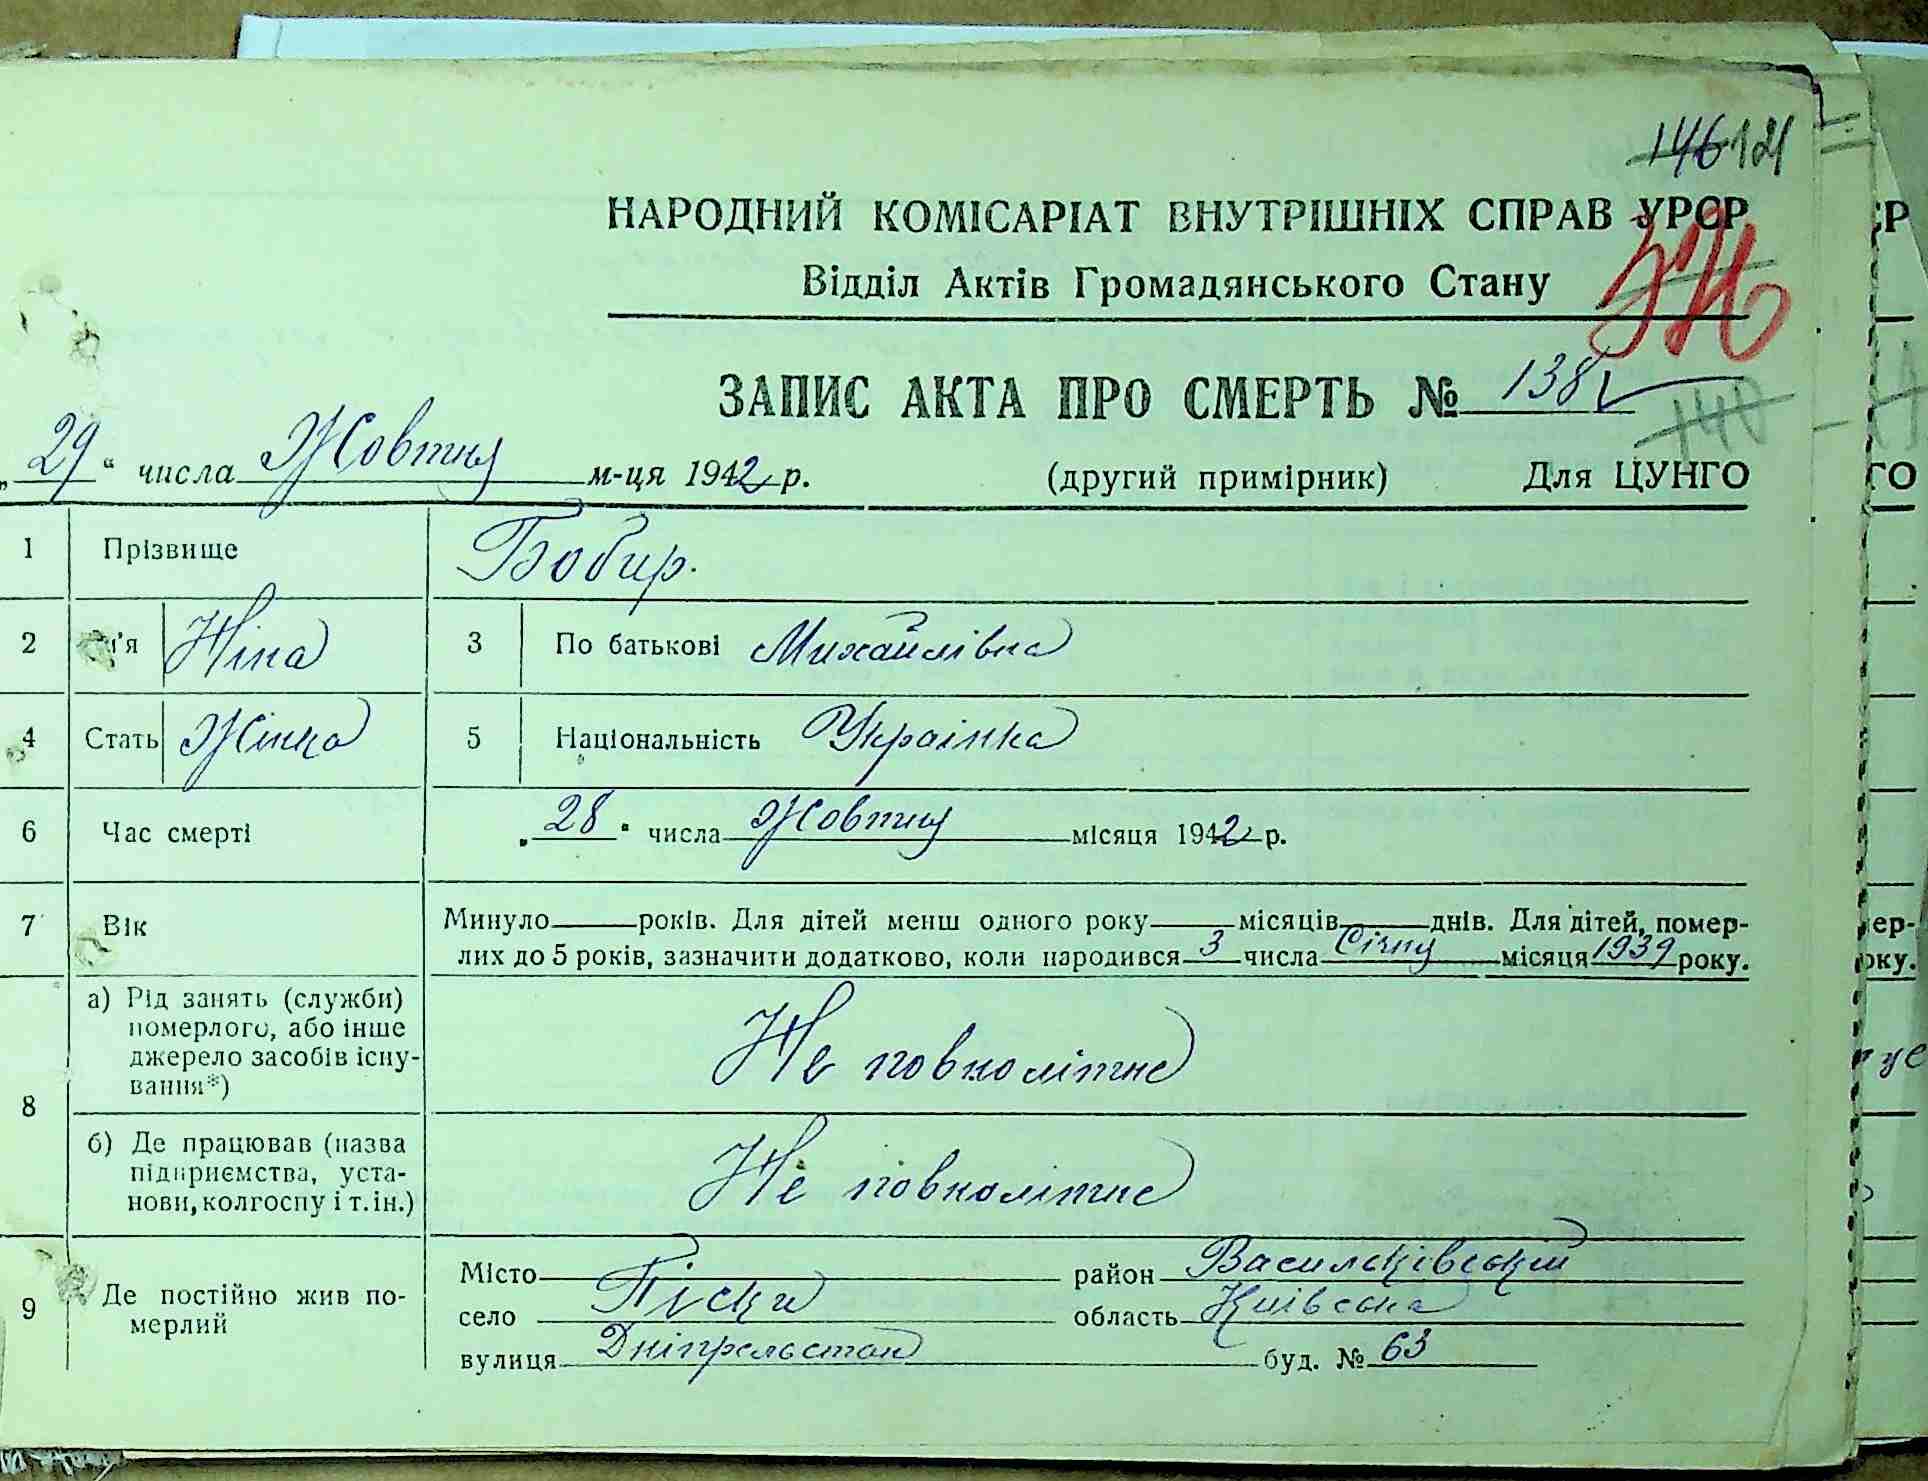 146 121
НАРОДНИЙ КОМІСАРІАТ ВНУТРІШНІХ СПРАВ УРСР
Відділ Актів Громадянського Стану
ЗАПИС АКТА ПРО СМЕРТЬ № 138
140
„29“ числа Жовтня м-ця 1942 р. (другий примірник) Для ЦУНГО
1 Прізвище Бобир.
2 м'я Ніна 3 По батькові Михайлівна
4 Стать Жінка 5 Національність Украінка
6 Час смерті „28“ числа Жовтня місяця 1942 р.
7 Вік Минуло років. Для дітей менш одного року місяців днів. Для дітей, помер-
лих до 5 років, зазначити додатково, коли народився 3 числа Січня місяця 1939 року.
8 а) Рід занять (служби)
померлого, або інше
джерело засобів існу-
вання*)
Не повнолітнє
б) Де працював (назва
підприємства, уста-
нови, колгоспу і т. ін.)
Не повнолітнє
9 Де постійно жив по-
мерлий
Місто район Васильківський
село Піски область Київська
вулиця буд. № 63